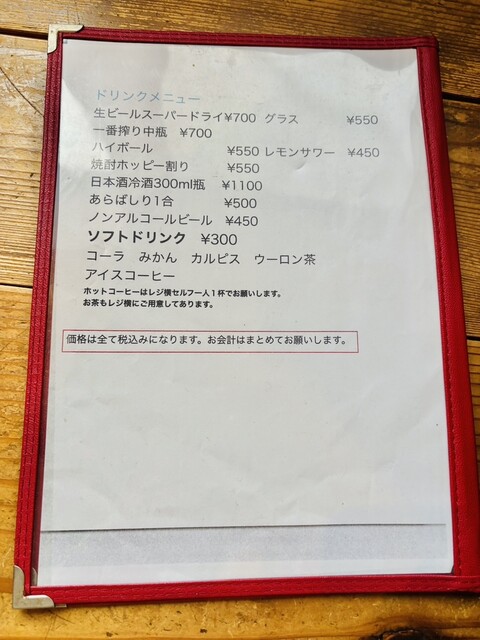 ドリンクメニュー
生ビールスーパードライ¥700 グラス ¥550
一番搾り中瓶 ¥700
ハイボール ¥550 レモンサワー ¥450
焼酎ホッピー割り ¥550
日本酒冷酒300ml瓶 ¥1100
あらばしり1合 ¥500
ノンアルコールビール ¥450
ソフトドリンク ¥300
コーラ みかん カルピス ウーロン茶
アイスコーヒー
ホットコーヒーはレジ横セルフ一人1杯でお願いします。
お茶もレジ横にご用意してあります。
価格は全て税込みになります。お会計はまとめてお願いします。